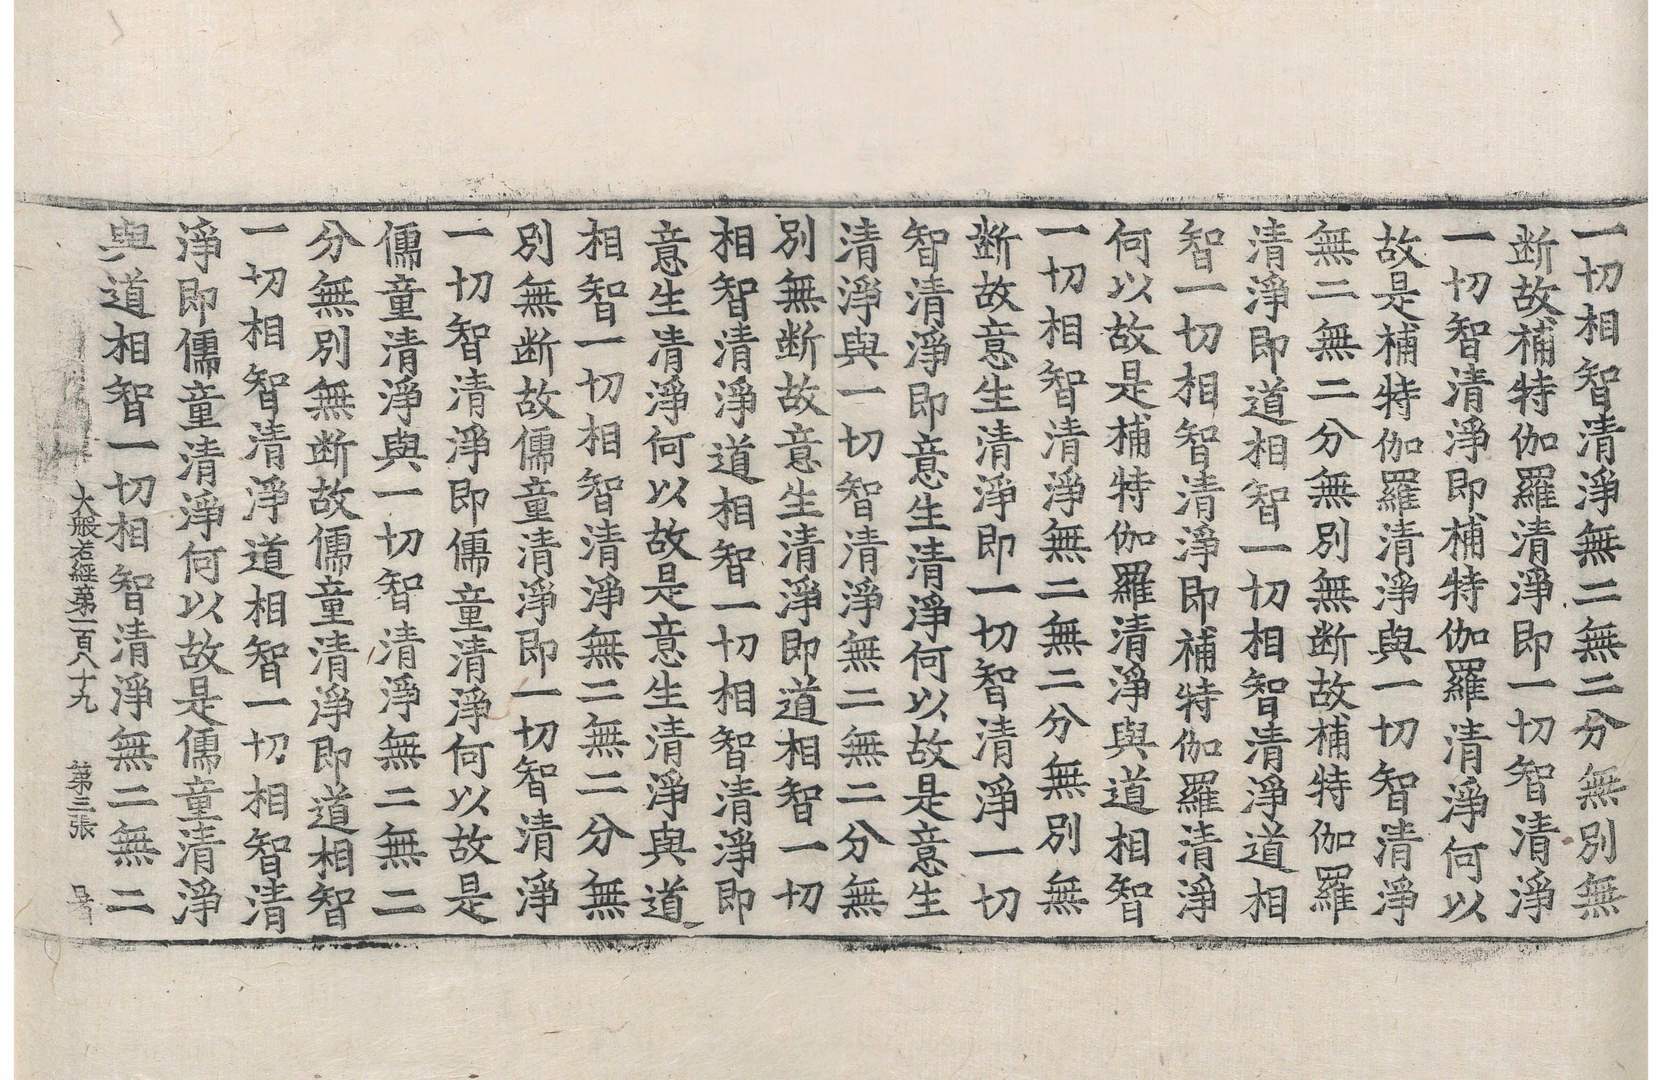 一切相智清淨無二無二分無別無
断故補特伽羅清淨即一切智清淨
一切智清淨即補特伽羅清淨何以
故是補特伽羅清淨與一切智清淨
無二無二分無別無断故補特伽羅
清淨即道相智一切相智清淨道相
智一切相智清淨即補特伽羅清淨
何以故是補特伽羅清淨與道相智
一切相智清淨無二無二分無別無
断故意生清淨即一切智清淨一切
智清淨即意生清淨何以故是意生
清淨與一切智清淨無二無二分無
別無断故意生清淨即道相智一切
相智清淨道相智一切相智清淨即
意生清淨何以故是意生清淨與道
相智一切相智清淨無二無二分無
別無断故儒童清淨即一切智清淨
一切智清淨即儒童清淨何以故是
儒童清淨與一切智清淨無二無二
分無別無断故儒童清淨即道相智
一切相智清淨道相智一切相智清
淨即儒童清淨何以故是儒童清淨
與道相智一切相智清淨無二無二
大般若經第一百八十九 第三張